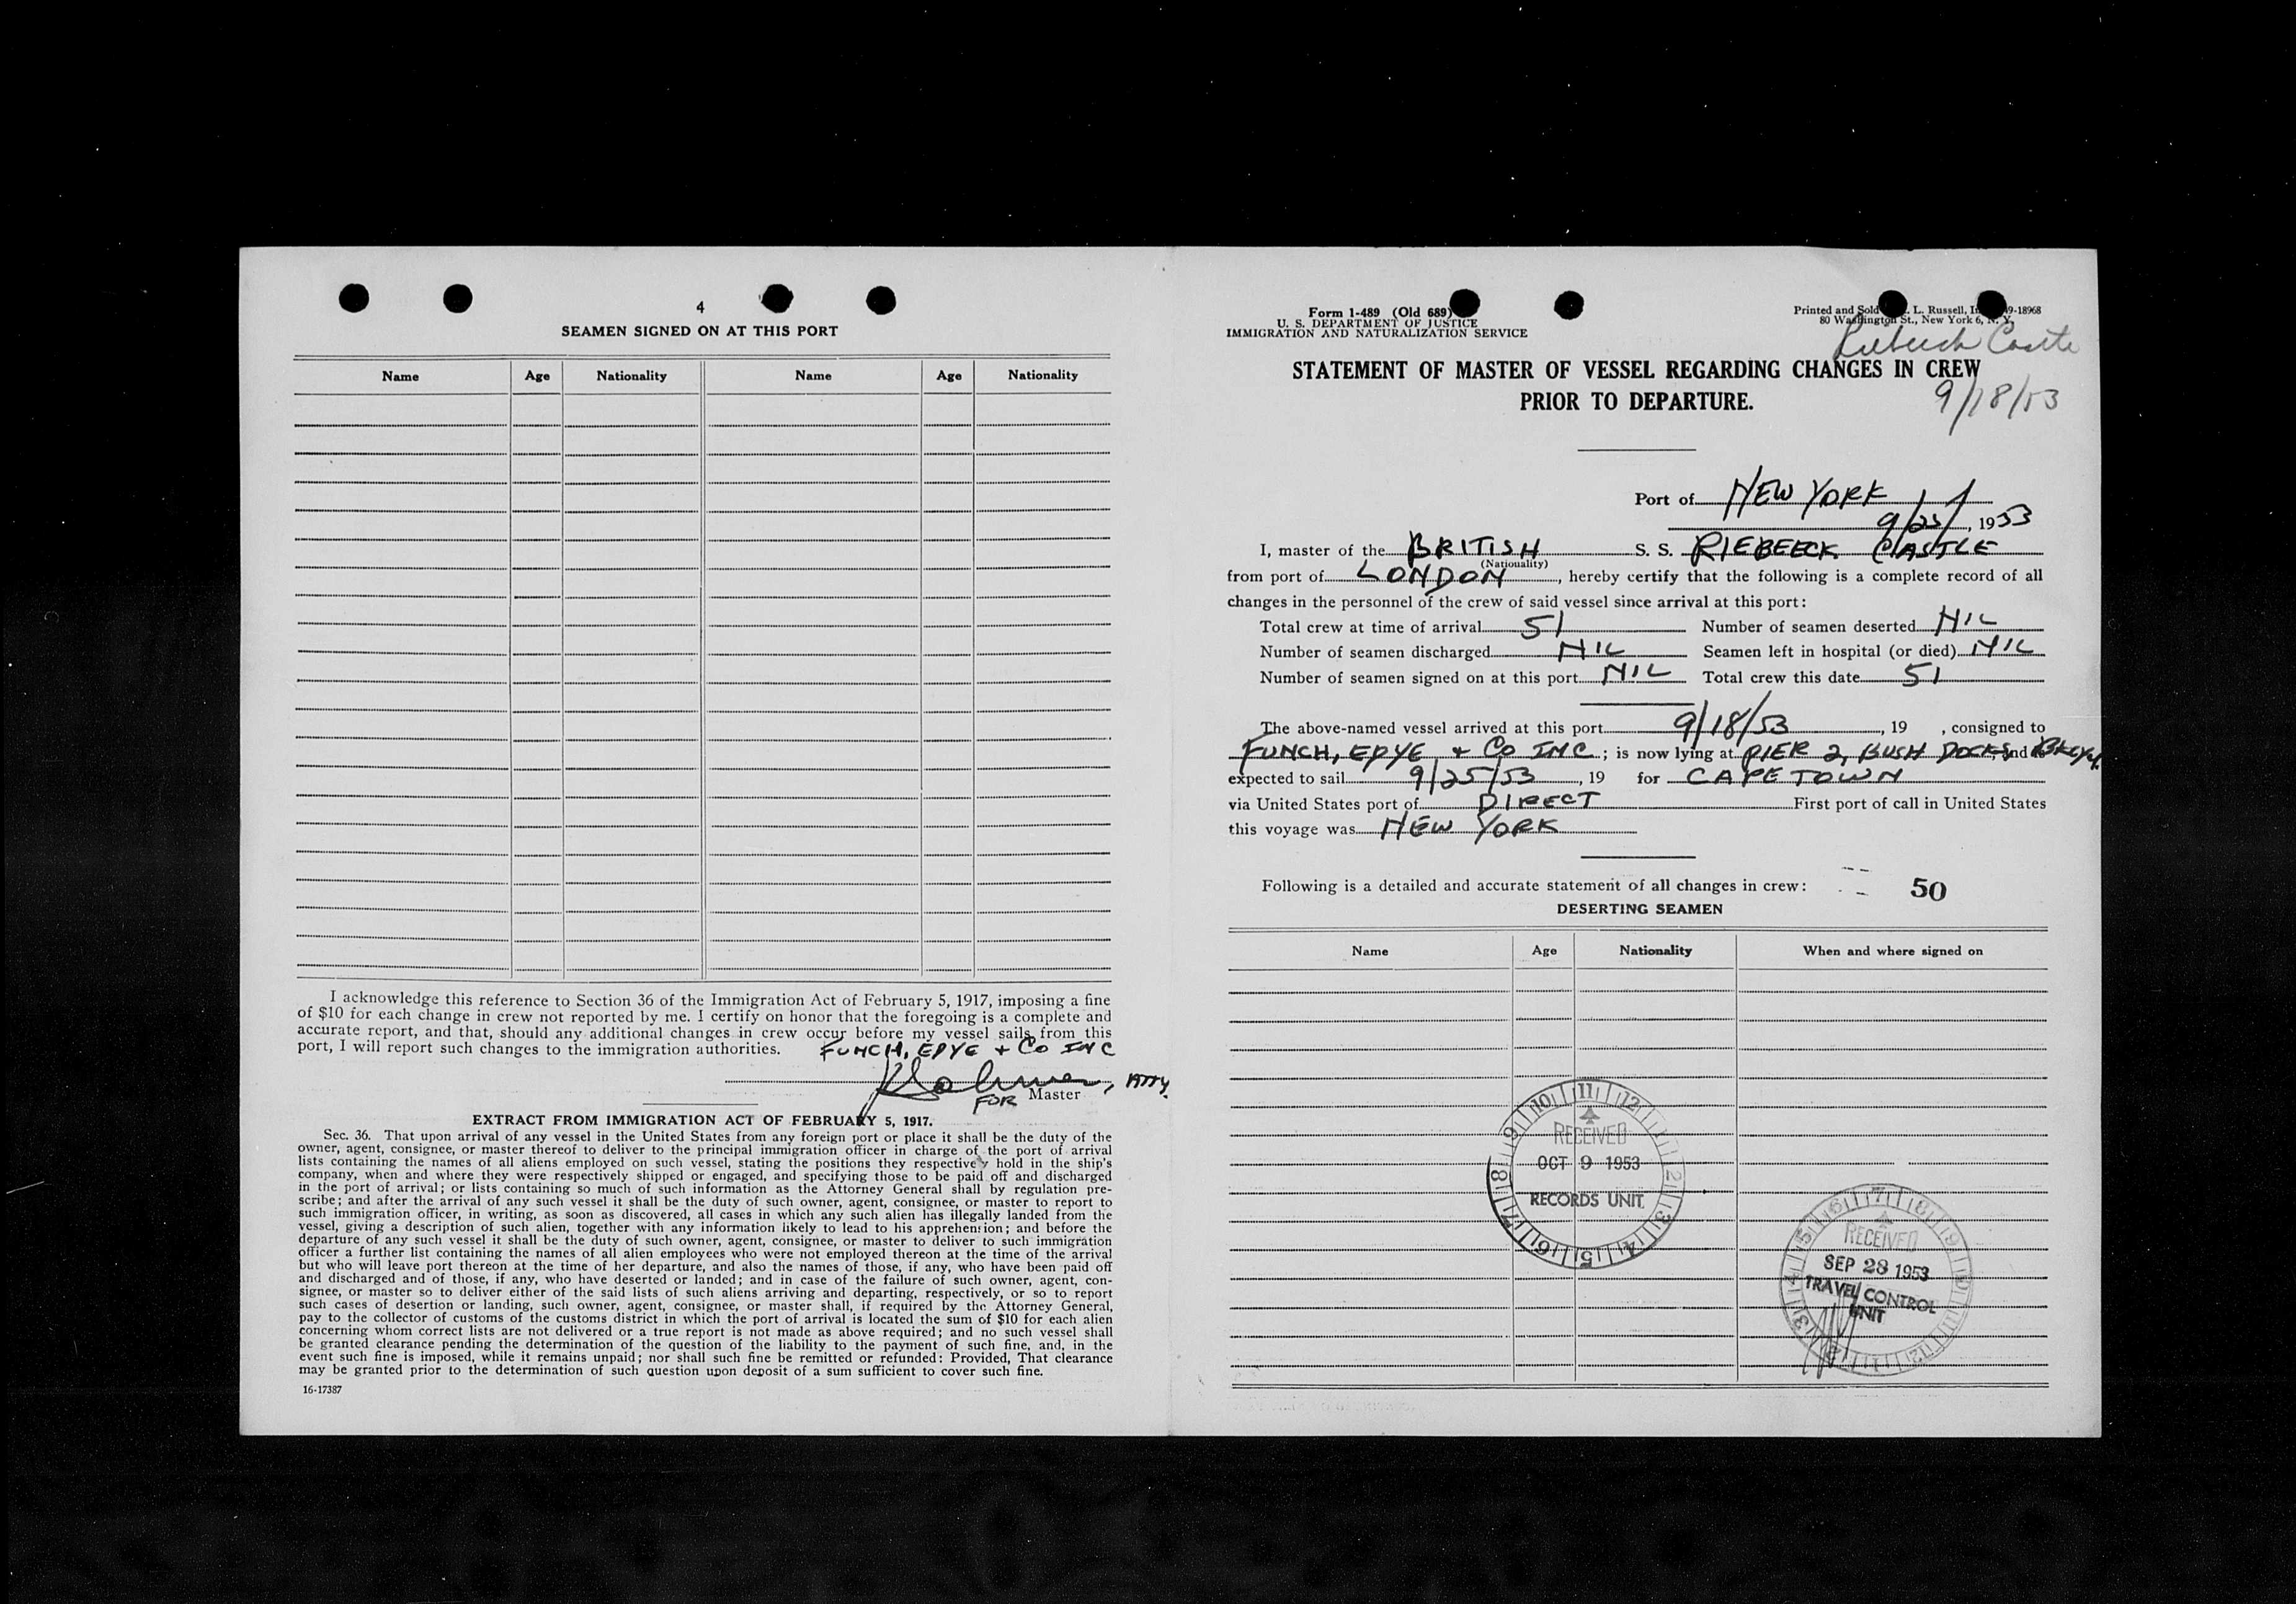 4
SEAMEN SIGNED ON AT THIS PORT
Name Age Nationality Name Age Nationality
I acknowledge this reference to Section 36 of the Immigration Act of February 5, 1917, imposing a fine
of $10 for each change in crew not reported by me. I certify on honor that the foregoing is a complete and
accurate report, and that, should any additional changes in crew occur before my vessel sails from this
port, I will report such changes to the immigration authorities. FUNCH, EDYE + Co INC
, ATTY.
FOR Master
EXTRACT FROM IMMIGRATION ACT OF FEBRUARY 5, 1917.
Sec. 36. That upon arrival of any vessel in the United States from any foreign port or place it shall be the duty of the
owner, agent, consignee, or master thereof to deliver to the principal immigration officer in charge of the port of arrival
lists containing the names of all aliens employed on such vessel, stating the positions they respectively hold in the ship's
company, when and where they were respectively shipped or engaged, and specifying those to be paid off and discharged
in the port of arrival; or lists containing so much of such information as the Attorney General shall by regulation pre-
scribe; and after the arrival of any such vessel it shall be the duty of such owner, agent, consignee, or master to report to
such immigration officer, in writing, as soon as discovered, all cases in which any such alien has illegally landed from the
vessel, giving a description of such alien, together with any information likely to lead to his apprehension; and before the
departure of any such vessel it shall be the duty of such owner, agent, consignee, or master to deliver to such immigration
officer a further list containing the names of all alien employees who were not employed thereon at the time of the arrival
but who will leave port thereon at the time of her departure, and also the names of those, if any, who have been paid off
and discharged and of those, if any, who have deserted or landed; and in case of the failure of such owner, agent, con-
signee, or master so to deliver either of the said lists of such aliens arriving and departing, respectively, or so to report
such cases of desertion or landing, such owner, agent, consignee, or master shall, if required by the Attorney General,
pay to the collector of customs of the customs district in which the port of arrival is located the sum of $10 for each alien
concerning whom correct lists are not delivered or a true report is not made as above required; and no such vessel shall
be granted clearance pending the determination of the question of the liability to the payment of such fine, and, in the
event such fine is imposed, while it remains unpaid; nor shall such fine be remitted or refunded: Provided, That clearance
may be granted prior to the determination of such question upon deposit of a sum sufficient to cover such fine.
16-17387
Form 1-489 (Old 689)
U. S. DEPARTMENT OF JUSTICE
IMMIGRATION AND NATURALIZATION SERVICE
Printed and Sold L. Russell, 9-18968
80 Washington St., New York 6, N. Y.
Riebeeck Castle
STATEMENT OF MASTER OF VESSEL REGARDING CHANGES IN CREW
PRIOR TO DEPARTURE.
9/18/53
Port of NEW YORK
9/25/, 1953
I, master of the BRITISH S. S. RIEBEECK CASTLE
(Nationality)
from port of LONDON, hereby certify that the following is a complete record of all
changes in the personnel of the crew of said vessel since arrival at this port:
Total crew at time of arrival 51 Number of seamen deserted NIL
Number of seamen discharged NIL Seamen left in hospital (or died) NIL
Number of seamen signed on at this port NIL Total crew this date 51
The above-named vessel arrived at this port 9/18/53, 19 , consigned to
FUNCH, EDYE + Co INC; is now lying at PIER 2, BUSH DOCKS, and is BKLYN.
expected to sail 9/25/53, 19 for CAPETOWN
via United States port of DIRECT First port of call in United States
this voyage was NEW YORK
Following is a detailed and accurate statement of all changes in crew: 50
DESERTING SEAMEN
Name Age Nationality When and where signed on
11 12 1 2 3 4 5 6 7 8 9 10
RECEIVED
OCT 9 1953
RECORDS UNIT
RECEIVED
SEP 28 1953
TRAVEL CONTROL
UNIT